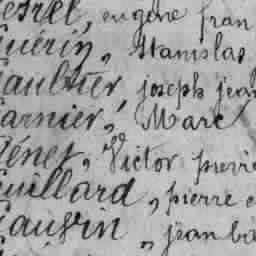 esrel, eugène fran
uérin, Stanislas
Gaultier, joseph jean
Garnier, Marc
Genet, Victor pierre
Guillard, pierre
Gaugin, jean ba